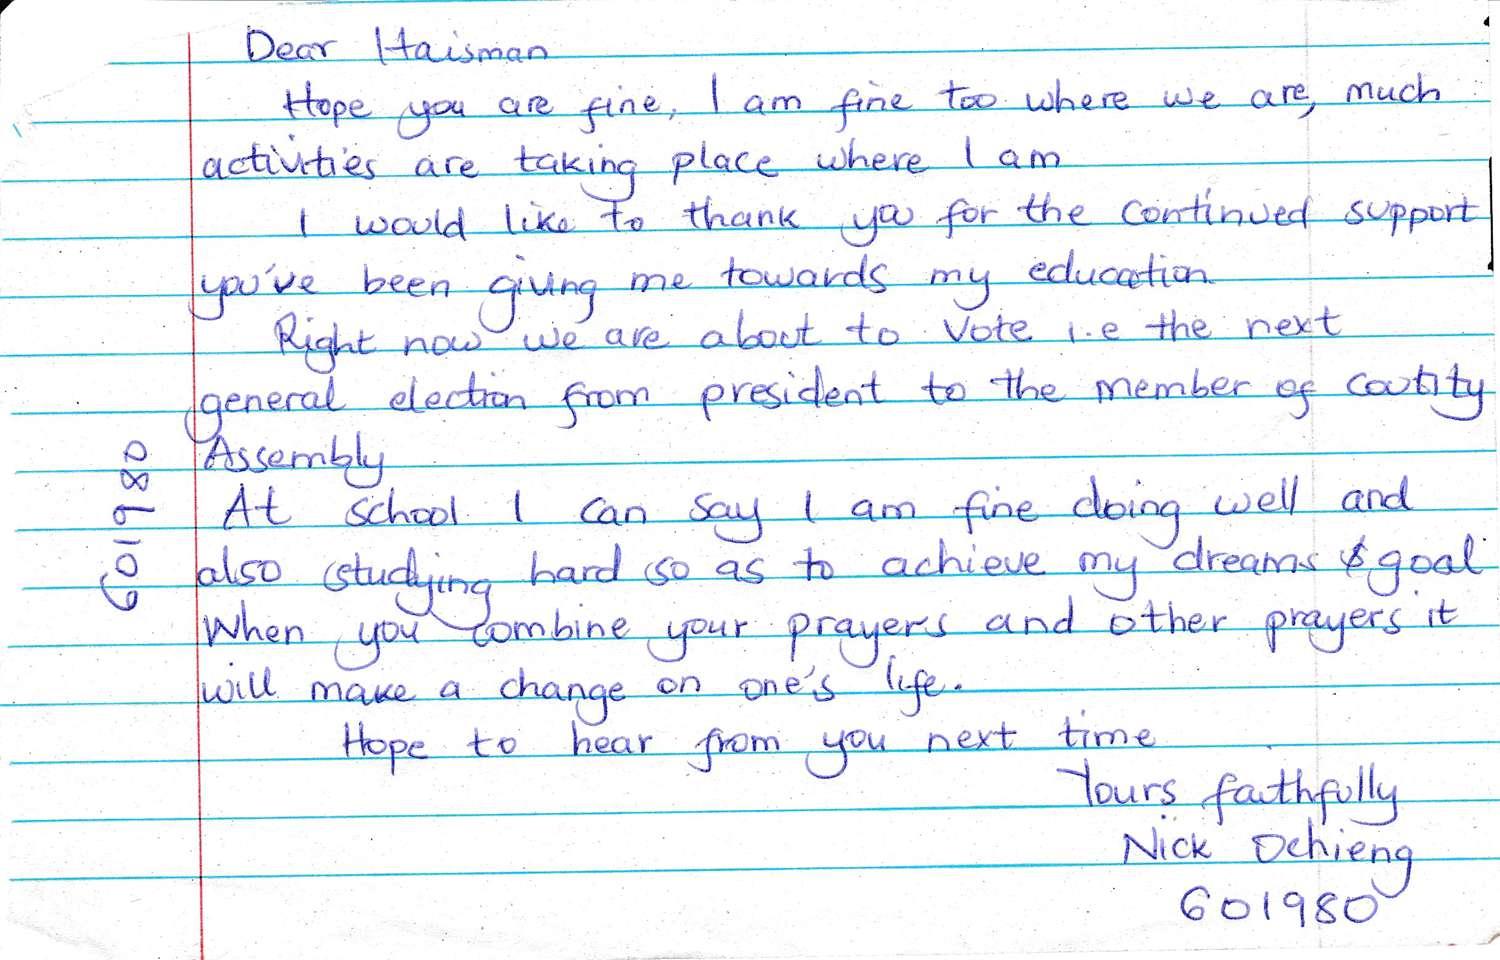 Dear Haisman
Hope you are fine, I am fine too where we are, much
activities are taking place where I am
I would like to thank you for the continued support
you've been giving me towards my education
Right now we are about to vote i.e the next
general election from president to the member of Coutity
Assembly
At school I can say I am fine doing well and
also studying hard so as to achieve my dreams & goal
When you combine your prayers and other prayers it
will make a change on one's life.
Hope to hear from you next time
Yours faithfully
Nick Ochieng
601980
601980